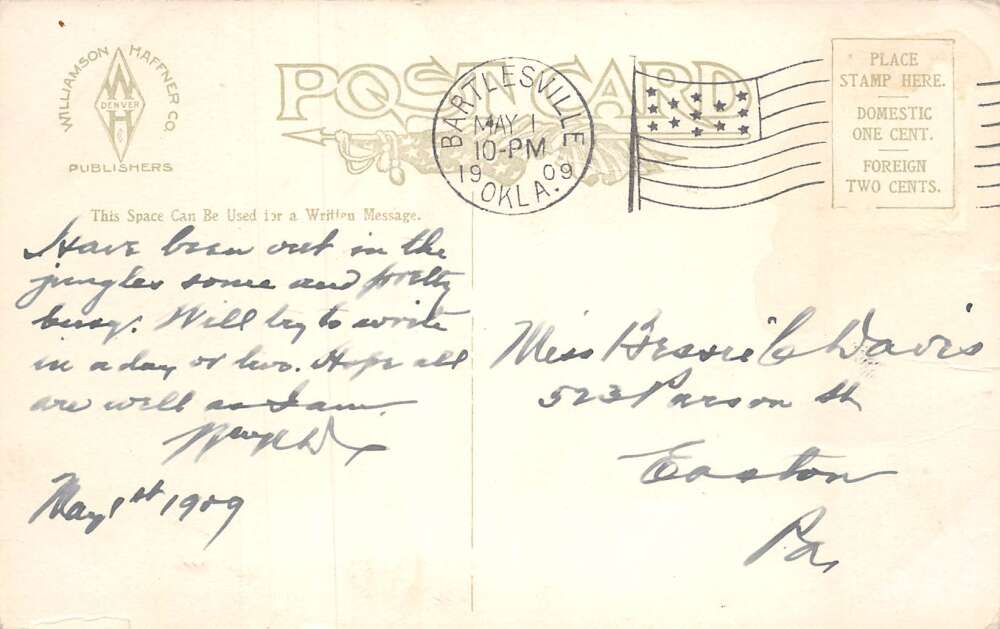 WILLIAMSON HAFFNER CO.
DENVER
W H Co
PUBLISHERS
POST CARD
BARTLESVILLE
MAY 1
10-PM
1909
OKLA.
PLACE
STAMP HERE.
DOMESTIC
ONE CENT.
FOREIGN
TWO CENTS.
This Space Can Be Used for a Written Message.
Have been out in the
jungles some and pretty
busy. Will try to write
in a day or two. Hope all
are well as I am.
May 1st 1909
Miss Bessie C Davis
523 Parson St
Easton
Pa,